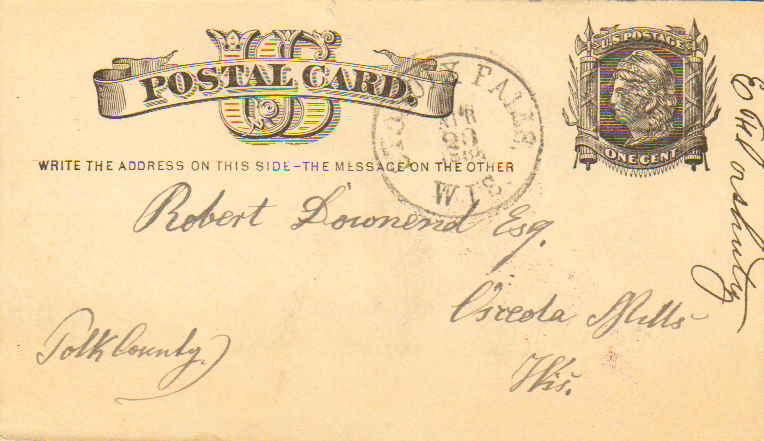 US
POSTAL CARD.
U.S. POSTAGE
ONE CENT
FALLS, WIS.
WRITE THE ADDRESS ON THIS SIDE–THE MESSAGE ON THE OTHER
Robert Downend Esq.
Osceola Mills
Polk County)
Wis.